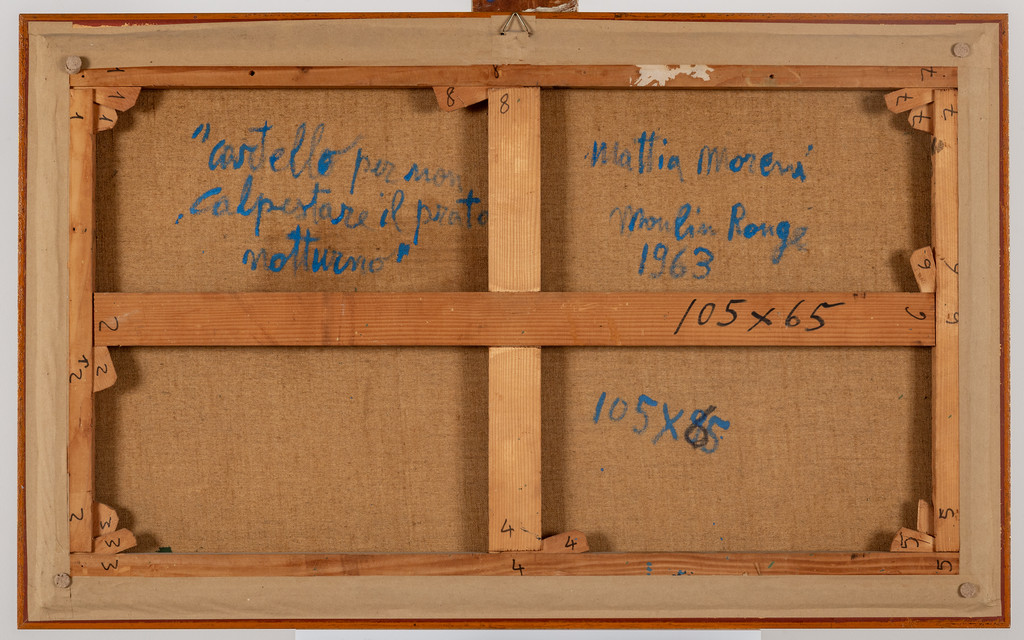 1
8
7
1
1
1
8
8
7
7
7
"cartello per non
calpestare il prato
notturno"
Mattia Moreni
Moulin Rouge
1963
6
6
2
105x65
6
5
2
2
105X65
2
3
3
3
4
4
4
5
5
5